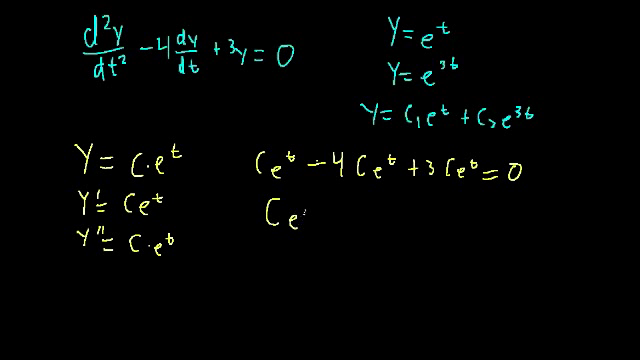 d²y/dt² - 4 dy/dt + 3y = 0
y = e^t
y = e^{3t}
y = c₁e^t + c₂e^{3t}
y = c·e^t
y' = ce^t
y'' = c·e^t
ce^t - 4ce^t + 3ce^t = 0
ce